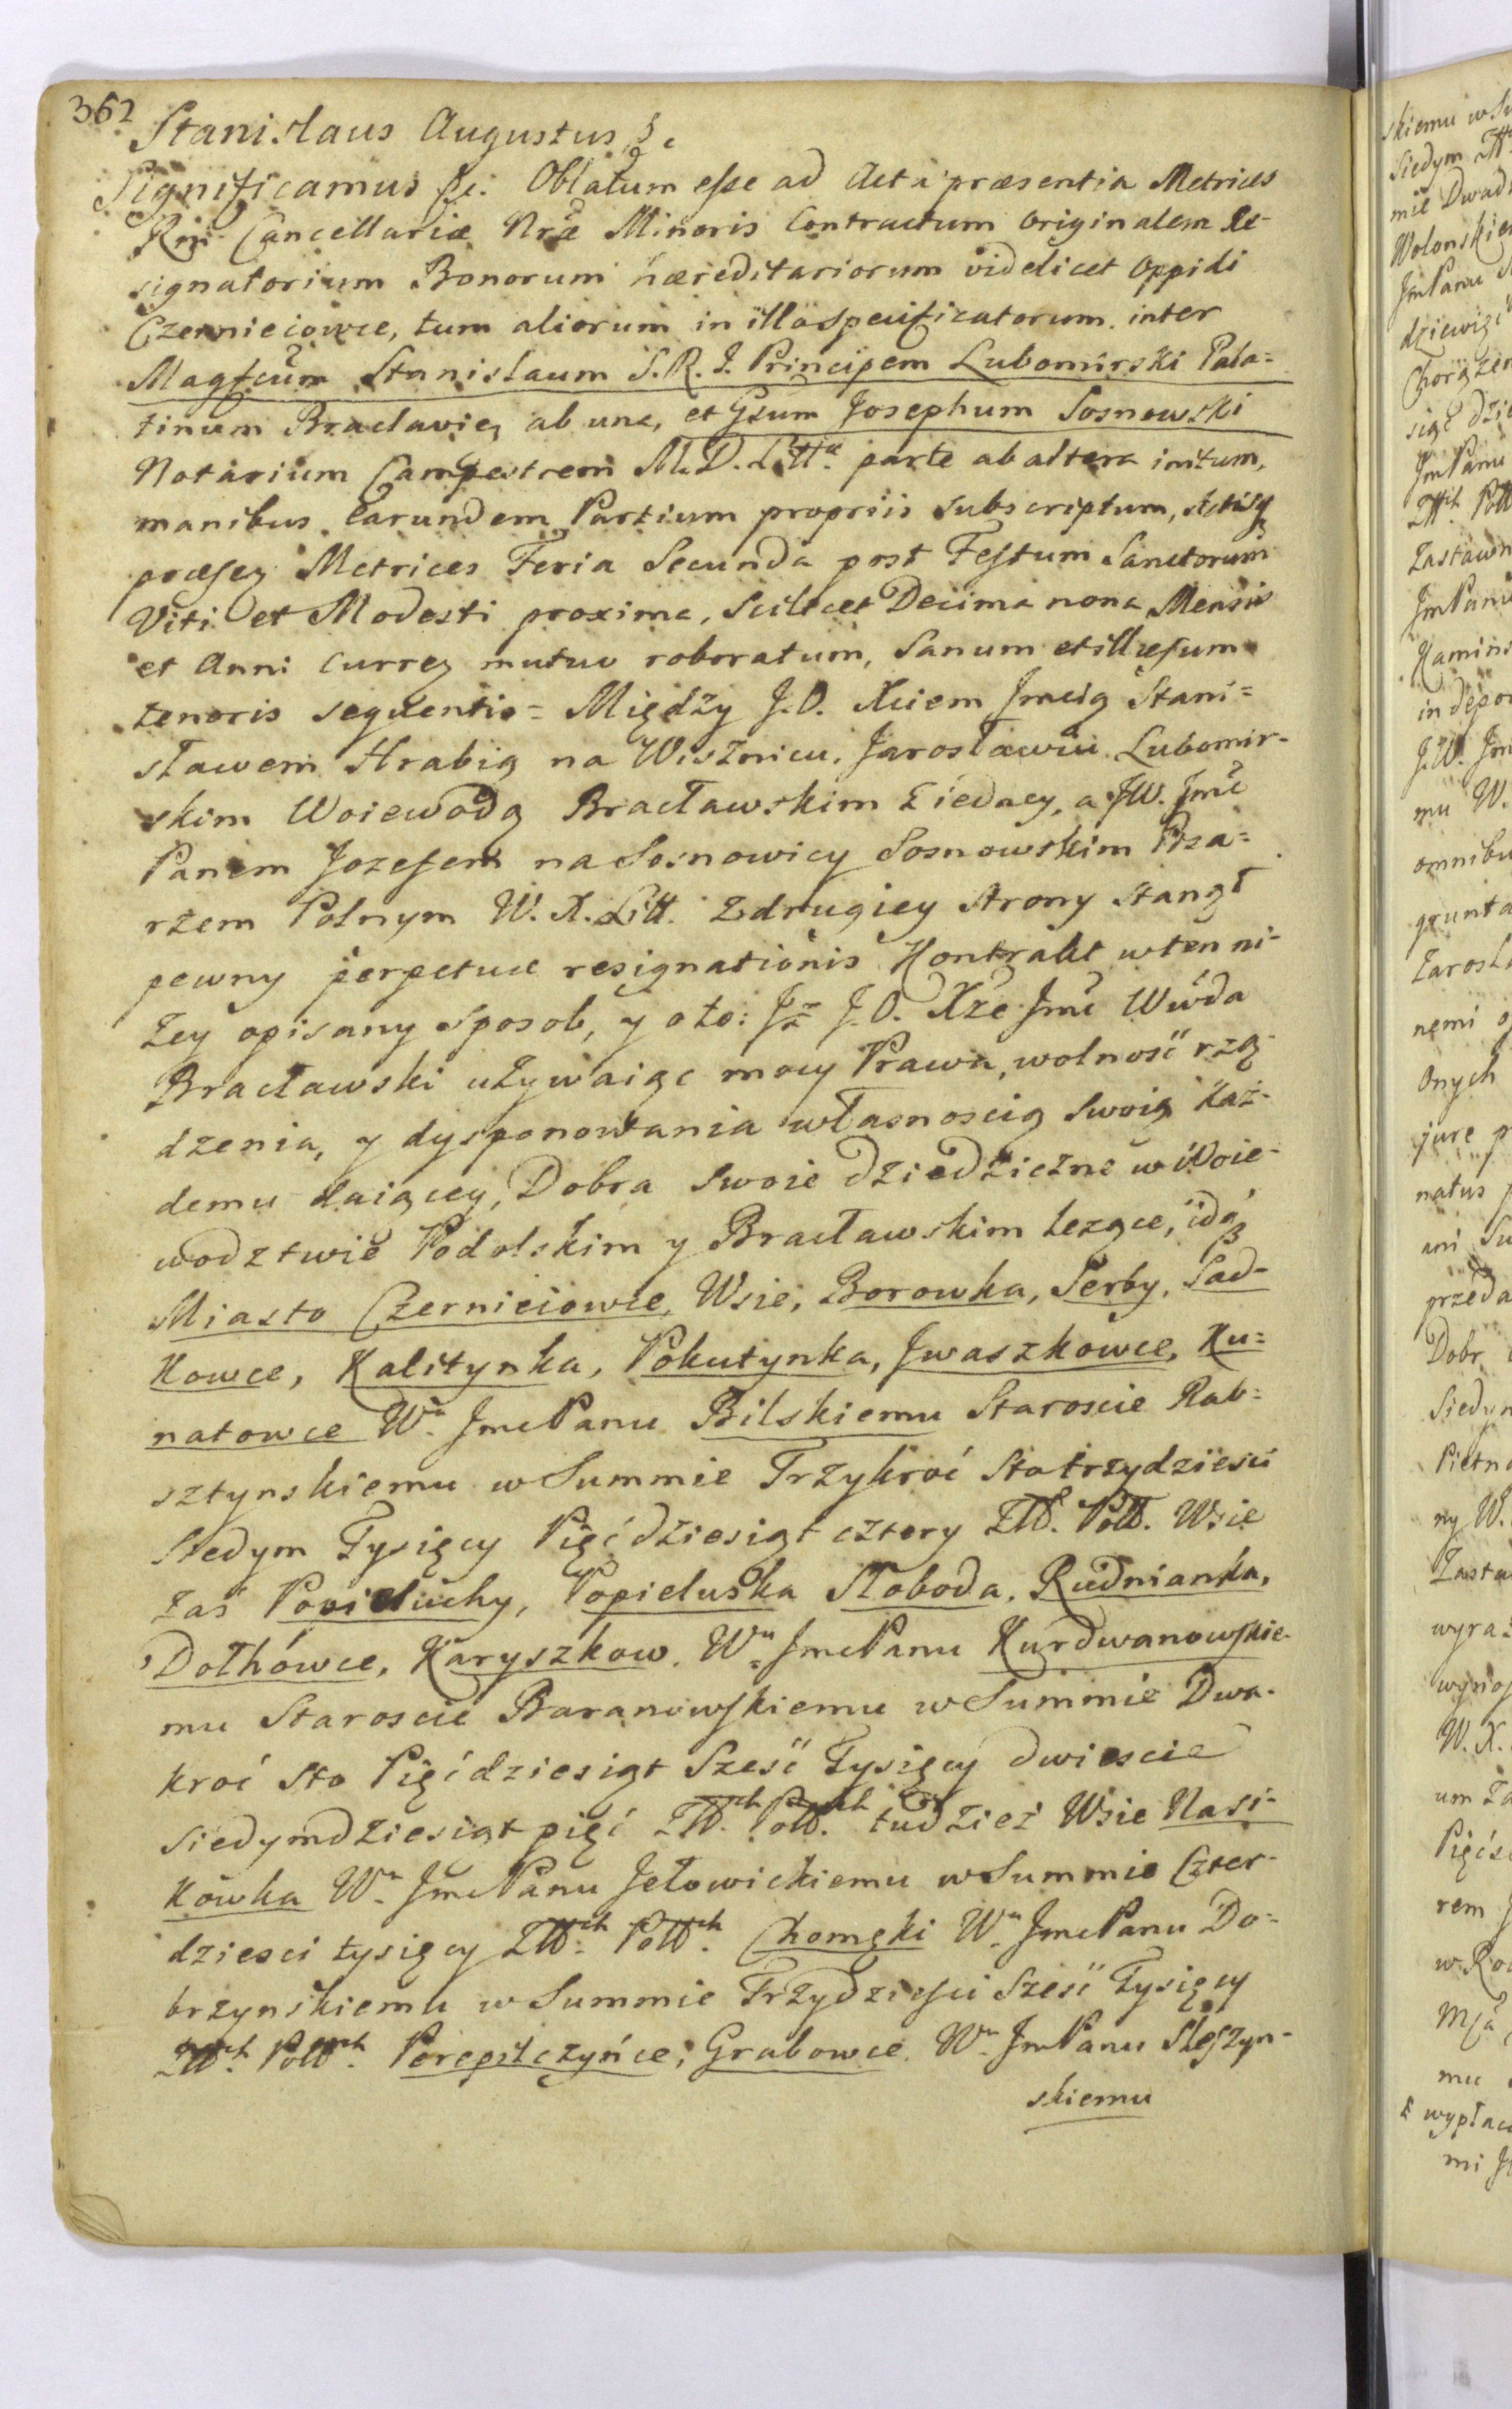 362
Stanislaus Augustus &c
Significamus &c. Oblatum esse ad Acta præsentia Metrices
Rni Cancellariæ Nræ Minoris Contractum Originalem Re-
signatorium Bonorum hæreditariorum videlicet Oppidi
Czernieiowce, tum aliorum in illo specificatorum inter
Magfcum Stanislaum S.R.I. Principem Lubomirski Pala=
tinum Braclavieȝ ab una, et Gsum Josephum Sosnowski
Notarium Campestrem M.D. Litt. parte ab altera initum,
manibus Earundem Partium propriis subscriptum, Actisq
præseȝ Metrices Feria Secunda post Festum Sanctorum
Viti et Modesti proxima, Scilicet Decima nona Mensis
et Anni Curreȝ mutuo roboratum, Sanum et illæsum
tenoris sequentis = Między J.O. Xciem Jmcią Stani=
sławem Hrabią na Wisznicu, Jarosławiu Lubomir-
skim Woiewodą Bracławskim z iedney, a JW. Jmć
Panem Jozefem na Sosnowicy Sosnowskim Pisa=
rzem Polnym W. X. Litt. z drugiey strony stanął
pewny perpetuæ resignationis Kontrakt w ten ni-
żey opisany sposob, y oto: Jż J.O. Xże Jmć Wwda
Bracławski używaiąc mocy Prawa, wolność rzą-
dzenia, y dysponowania własnością swoią każ-
demu daiącey, Dobra swoie dziedziczne w Woie-
wodztwie Podolskim y Bracławskim lezące, idq
Miasto Czernieiowce, Wsie, Borowka, Serby, Sad-
kowce, Kalitynka, Pokutynka, Jwaszkowce, Ku=
natowce W. JmcPanu Bilskiemu Staroscie Rab=
sztynskiemu w Summie Trzykroć Sto trzydziesci
Siedym Tysięcy Pięćdziesiąt cztery Złł. Poll. Wsie
zaś Popieluchy, Popieluska Słoboda, Rudnianka,
Dołhówce, Karyszkow W. JmcPanu Kurdwanowskie-
mu Staroscie Baranowskiemu w Summie Dwa-
kroć Sto Pięćdziesiąt Sześć Tysięcy dwiescie
siedymdziesiąt pięć Złłch Pollch tudzież Wsie Nasi-
kowka W. JmcPanu Jełowickiemu w Summie Czter-
dziesci tysięcy Złłch Pollch Chomęki W. JmcPanu Do=
brzynskiemu w Summie Trzydziesci Sześć Tysięcy
Złłch Pollch Perepilczyńce, Grabowce W. JmPanu Sleszyn-
skiemu